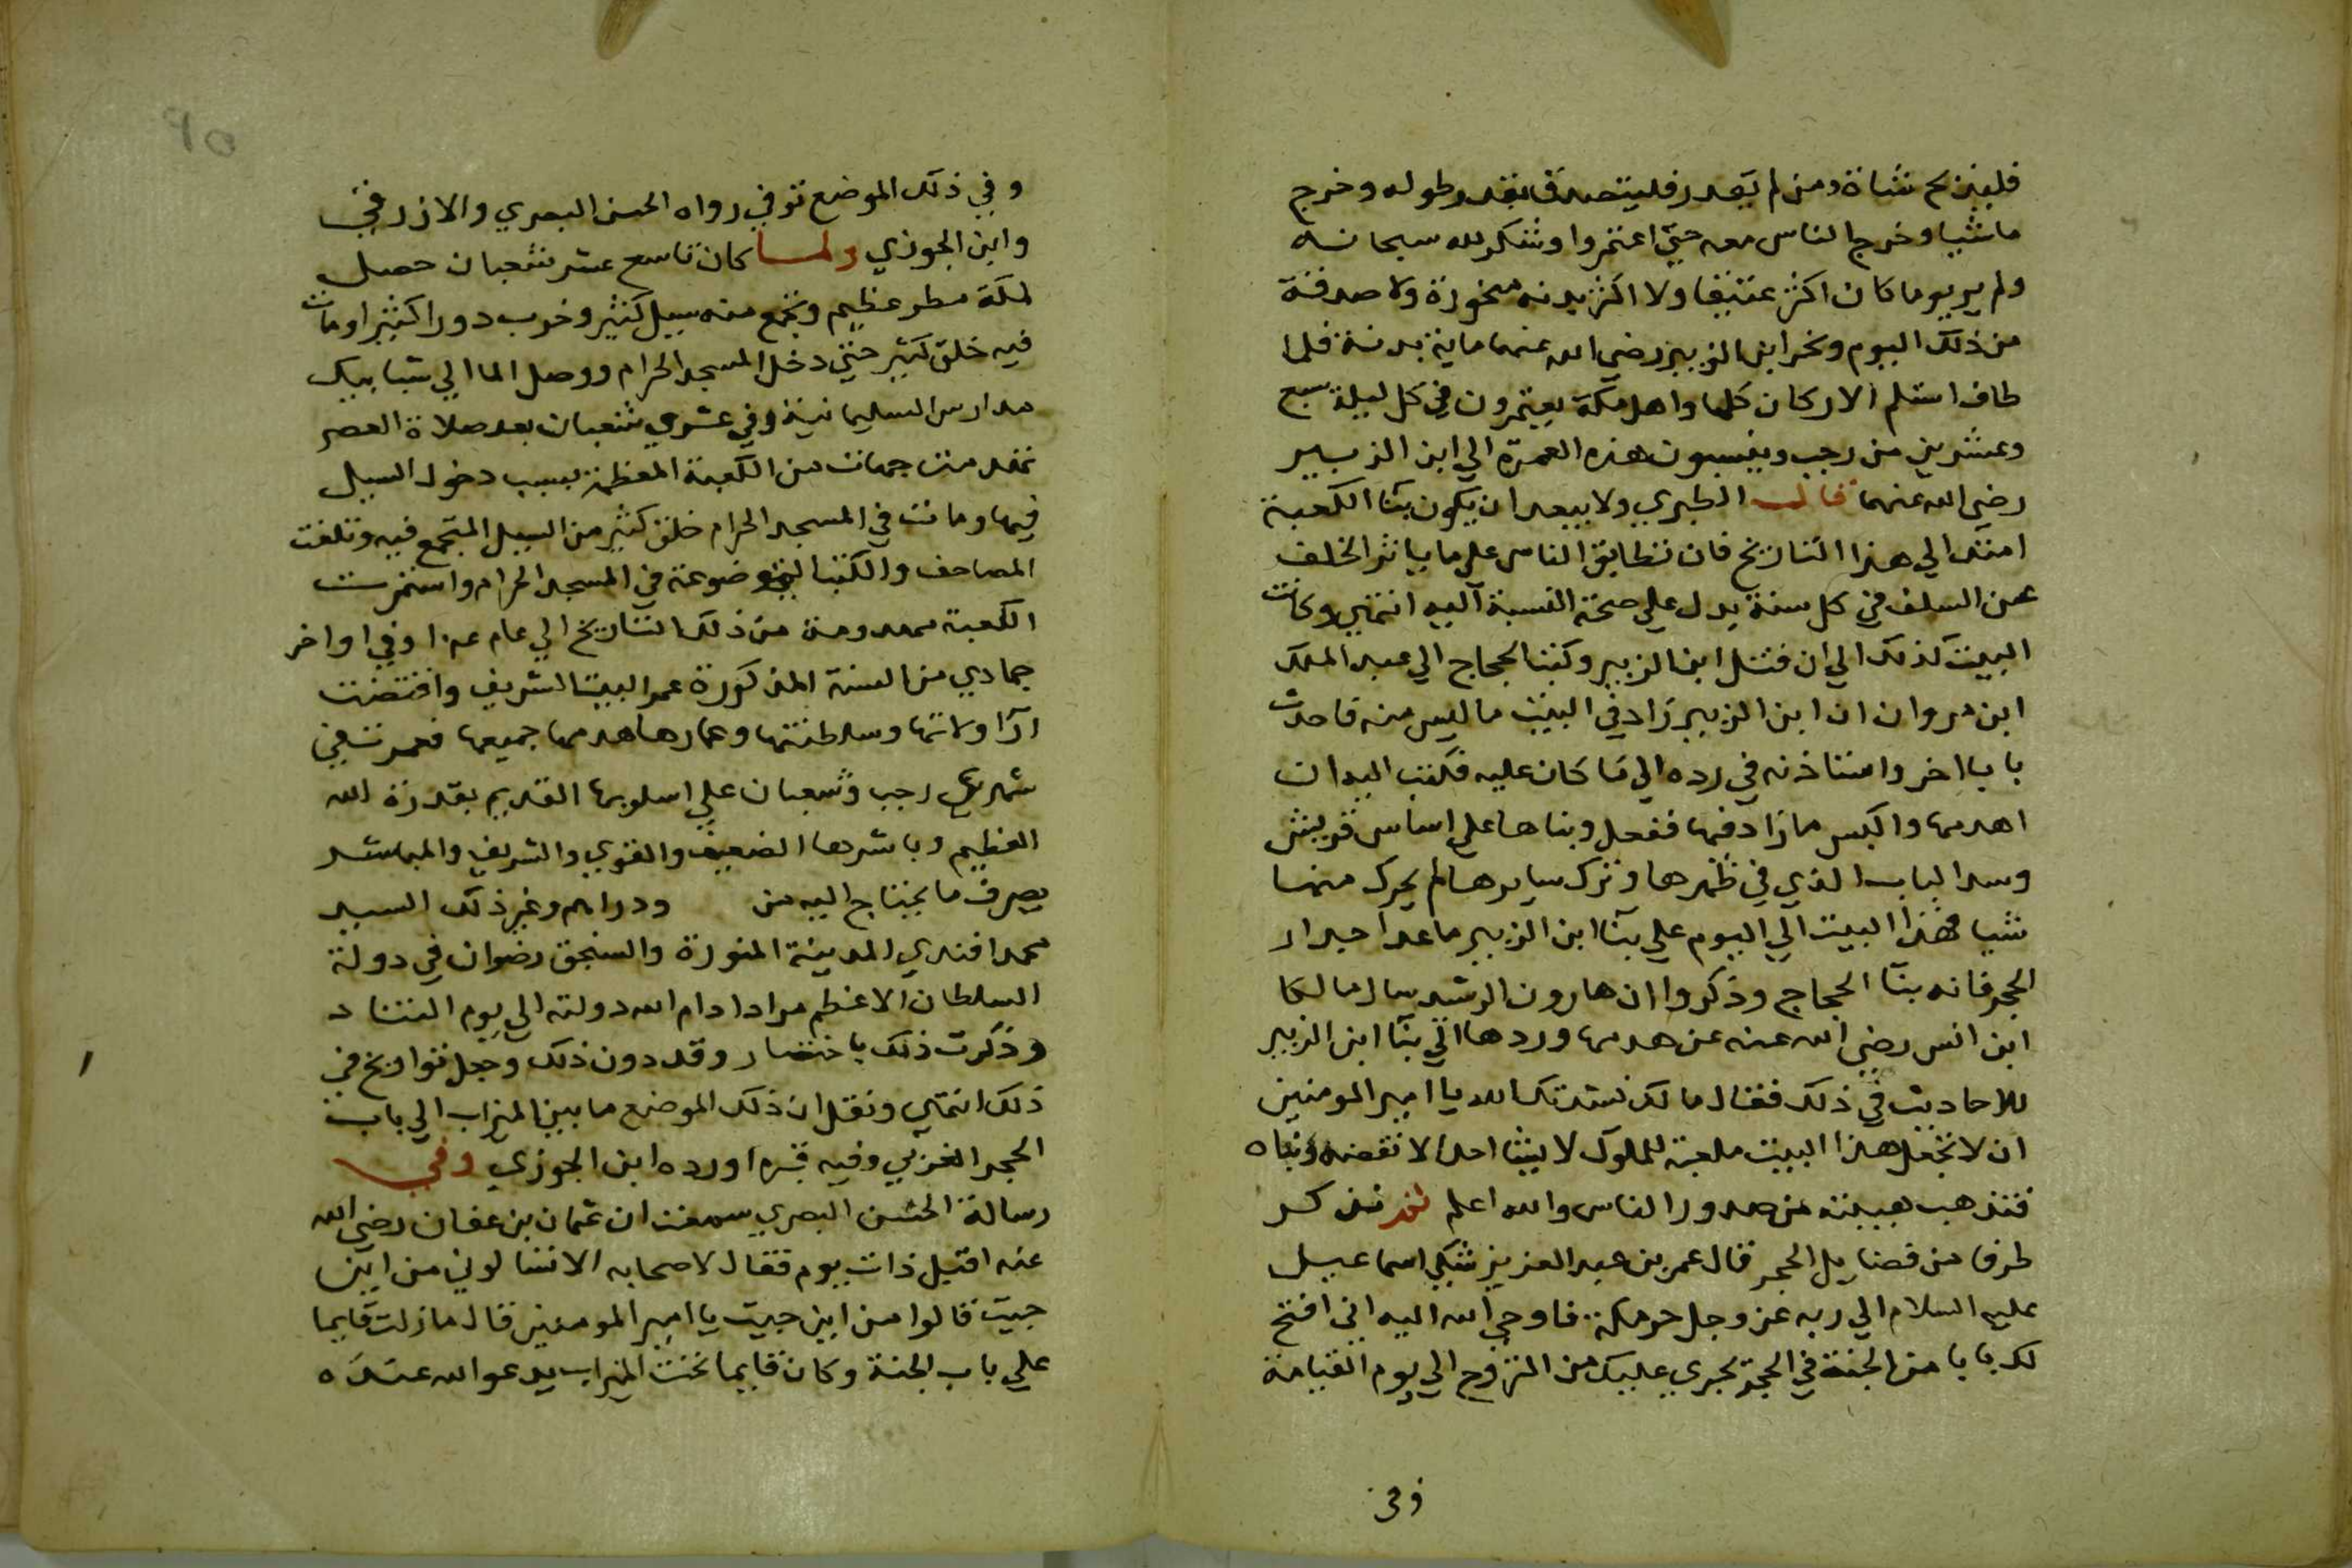 فليذبح شاة ومن لم يقدر فليتصدق بقدر طوله وخرج
ماشيا وخرج الناس معه حتى اعتمروا وشكر لله سبحانه
ولم ير يوما كان اكثر عتيقا ولا اكثر بدنه منحورة ولا صدقة
من ذلك اليوم ونحر ابن الزبير رضي الله عنهما ماية بدنة فلما
طاف استلم الاركان كلها واهل مكة يعتمرون في كل ليلة سبع
وعشرين من رجب وينسبون هذه العمرة الي ابن الزبير
رضي الله عنهما قال الطبري ولا يبعد ان يكون بنآ الكعبة
امتد الي هذا التاريخ فان تطابق الناس على ما ياثر الخلف
عن السلف في كل سنة يدل علي صحة النسبة اليه انتهي وكانت
البيت كذلك الي ان قتل ابن الزبير وكتب الحجاج الي عبد الملك
ابن مروان ان ابن الزبير زاد في البيت ما ليس منه واحدث
بابا اخر واستاذنه في رده الي ما كان عليه فكتب اليه ان
اهدمها واكبس ما زاد فيها ففعل وبناها علي اساس قريش
وسد الباب الذي في ظهرها وترك سايرها لم يحرك منها
شيا فهذا البيت الي اليوم علي بنآ ابن الزبير ما عدا جدار
الحجر فانه بنآ الحجاج وذكروا ان هارون الرشيد سال مالكا
ابن انس رضي الله عنه عن هدمها وردها الي بنآ ابن الزبير
للاحاديث في ذلك فقال مالك نشدتك الله يا امير المومنين
ان لا تجعل هذا البيت ملعبة للملوك لا يشا احد الا نقضه وبناه
فتذهب هيبته من صدور الناس والله اعلم ثم نذكر
طرفا من فضايل الحجر قال عمر بن عبد العزيز شكي اسماعيل
عليه السلام الي ربه عز وجل حر مكة فاوحي الله اليه اني افتح
لك بابا من الجنة في الحجر يجري عليك من الروح الي يوم القيامة
وفي
وفي ذلك الموضع توفي رواه الحسن البصري والازرقي
وابن الجوزي ولما كان تاسع عشر شعبان حصل
لمكة مطر عظيم وتجمع منه سيل كثير وخرب دورا كثيرا ومات
فيه خلق كثير حتي دخل المسجد الحرام ووصل الما الي شبابيك
مدارس السليمانية وفي عشري شعبان بعد صلاة العصر
تهدمت جهات من الكعبة المعظمة بسبب دخول السيل
فيها ومات في المسجد الحرام خلق كثير من السيل المتجمع فيه وتلفت
المصاحف والكتب الموضوعة في المسجد الحرام واستمرت
الكعبة مهدومة من ذلك التاريخ الي عام وفي اواخر
جمادي من السنة المذكورة عمر البيت الشريف واقتضت
ارآ ولاتها وسلطنتها وعمارها هدمها جميعها فعمرت في
شهري رجب وشعبان علي اسلوبها القديم بقدرة الله
العظيم وباشرها الضعيف والقوي والشريف والمباشر
بصرف ما يحتاج اليه من ودراهم وغير ذلك السيد
محمد افندي المدينة المنورة والسنجق رضوان في دولة
السلطان الاعظم مراد ادام الله دولته الي يوم التناد
وذكرت ذلك باختصار وقد دون ذلك وجعل تواريخ في
ذلك انتهي ونقل ان ذلك الموضع ما بين الميزاب الي باب
الحجر الغربي وفيه قبره اورده ابن الجوزي وفي
رسالة الحسن البصري سمعت ان عثمان بن عفان رضي الله
عنه اقبل ذات يوم فقال لاصحابه الا تسالوني من اين
جيت قالوا من اين جيت يا امير المومنين قال ما زلت قايما
علي باب الجنة وكان قايما تحت الميزاب يدعو الله عنده